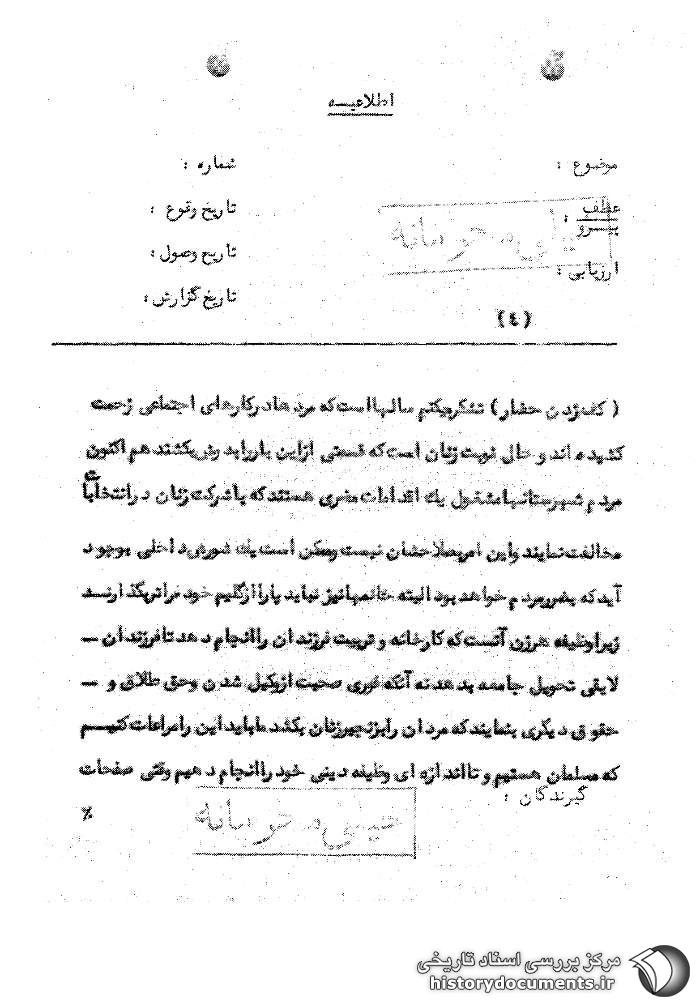 اطلاعیـــه
موضوع :
شماره :
عطف
پیـــرو :
تاریخ وقوع :
تاریخ وصول :
ارزیابی :
تاریخ گزارش :
خیلی محرمانه
(٤)
( کف زدن حضار ) تشکر میکنم سالها است که مردها در کارهای اجتماعی زحمت
کشیده اند و حال نوبت زنان است که قسمتی از این بار را بدوش بکشند هم اکنون
مردم شهرستانها مشغول یك اقدامات مضری هستند که با شرکت زنان در انتخابات
مخالفت نمایند و این امر بصلاحشان نیست و ممکن است یك شورش داخلی بوجود
آید که بضرر مردم خواهد بود البته خانمها نیز نباید پا را از گلیم خود فراتر بگذارنــد
زیرا وظیفه هر زن آنست که کارخانه و تربیت فرزندان را انجام دهد تا فرزندان ــ
لایقی تحویل جامعه بدهد نه آنکه فوری صحبت از وکیل شدن و حق طلاق و ــ
حقوق دیگری بنمایند که مردان را بزنجیر زنان بکشد ما باید این را مراعات کنیـــم
که مسلمان هستیم و تا اندازه ای وظیفه دینی خود را انجام دهیم وقتی صفحات
گیرندگان :
٪
خیلی محرمانه
مرکز بررسی اسناد تاریخی
historydocuments.ir